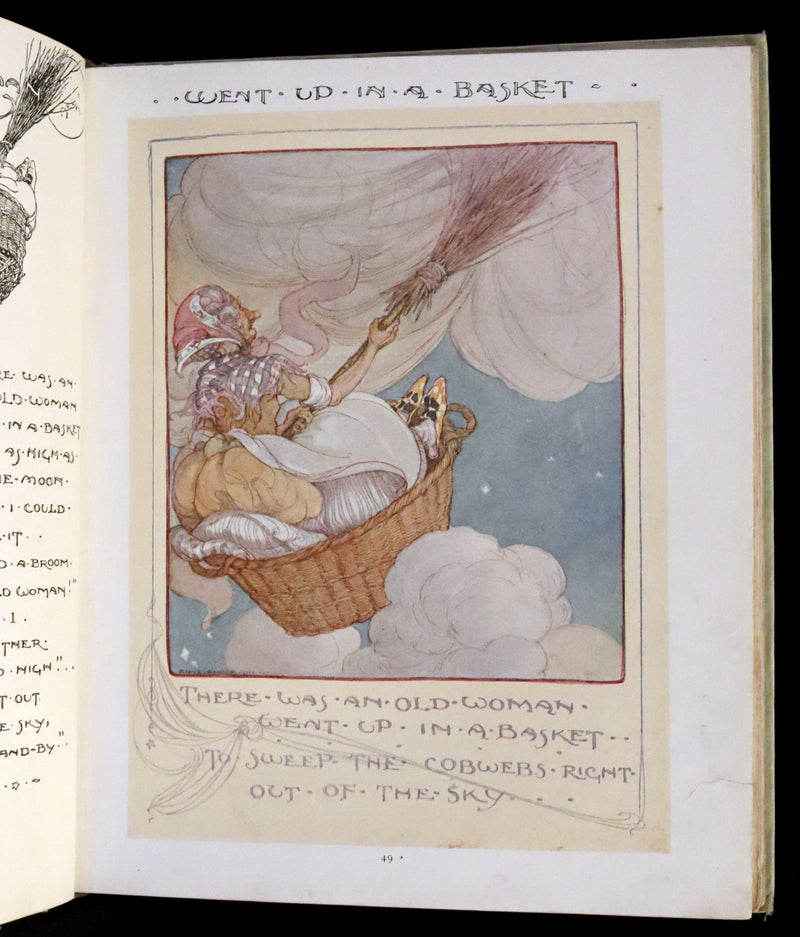 RE· WAS· AN·
OLD· WOMAN
· IN · A · BASKET
AS· HIGH· AS·
E· MOON·
· I · COULD·
IT · ·
D · A · BROOM·
D WOMAN!"
· I ·
THER·
HIGH" · ·
T· OUT
E· SKY,
AND-BY" · ·
· · WENT · UP · IN · A · BASKET · ·
THERE · WAS · AN · OLD · WOMAN ·
WENT · UP · IN · A · BASKET · ·
TO · SWEEP · THE · COBWEBS · RIGHT·
OUT · OF · THE · SKY · · ·
49 ·